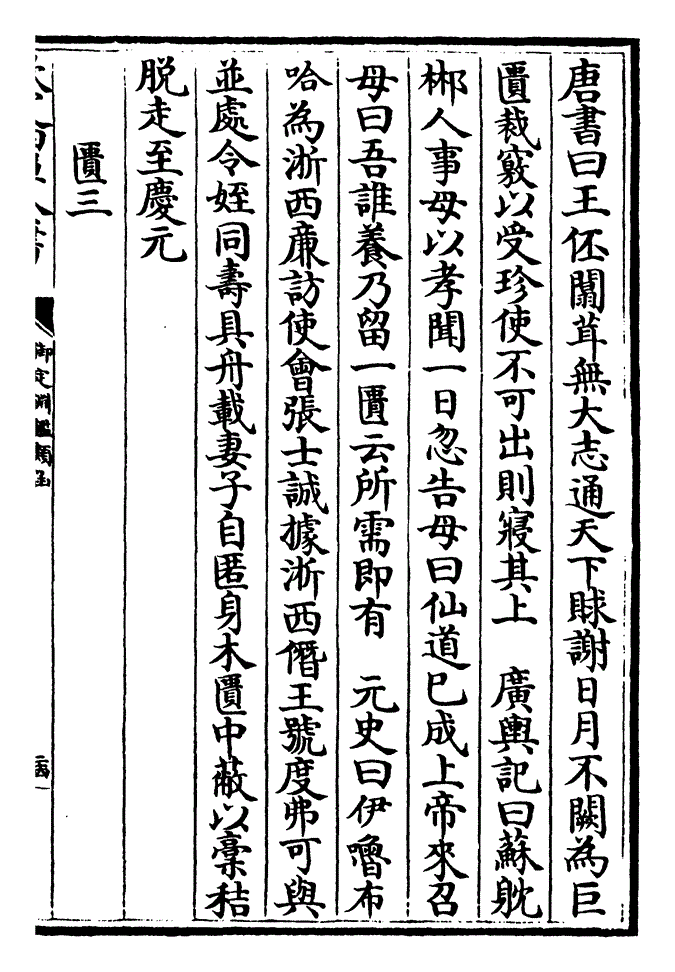 唐書曰王伾闒茸無大志通天下賕謝日月不闕為巨
匱裁竅以受珍使不可出則寢其上　廣輿記曰蘇躭
郴人事母以孝聞一日忽告母曰仙道已成上帝來召
母曰吾誰養乃留一匱云所需即有　元史曰伊嚕布
哈為浙西亷訪使會張士誠據浙西僭王號度弗可與
並處令姪同夀具舟載妻子自匿身木匱中蔽以藁秸
脱走至慶元
匱三
御定淵鑑類函